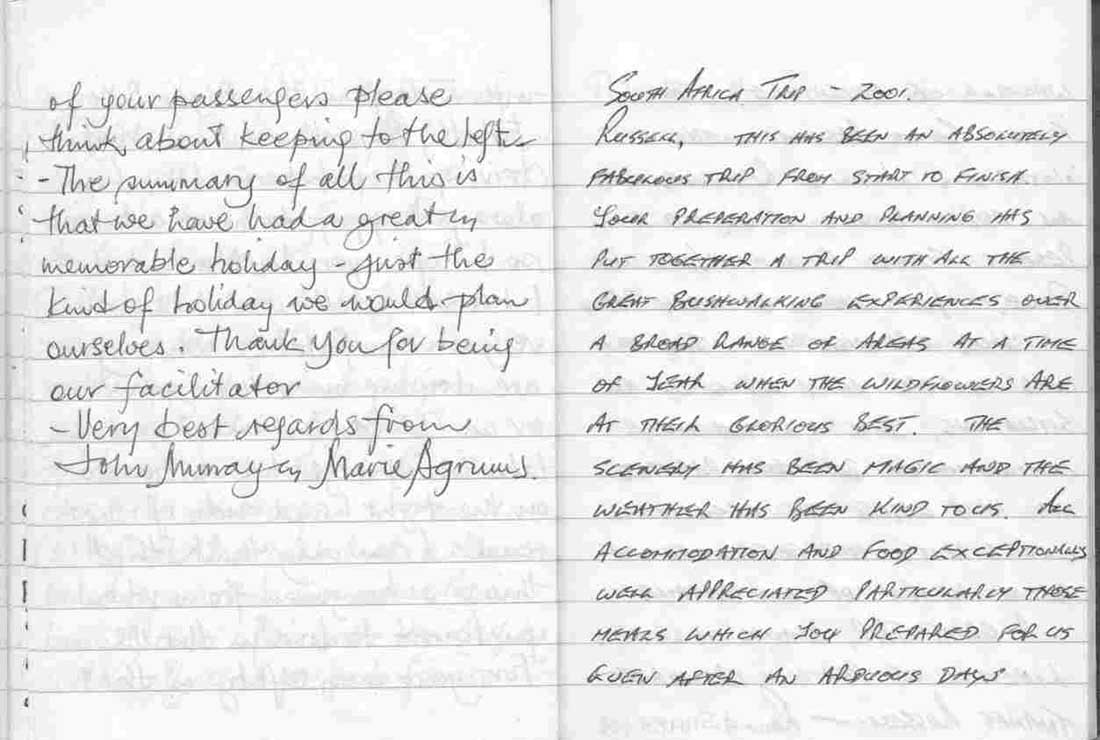 of your passengers please
think, about keeping to the left
- The summary of all this is
that we have had a great &
memorable holiday - just the
kind of holiday we would plan
ourselves. Thank you for being
our facilitator
- Very best regards from
John Murray & Marie
SOUTH AFRICA TRIP - 2001.
RUSSELL, THIS HAS BEEN AN ABSOLUTELY
FABULOUS TRIP FROM START TO FINISH.
YOUR PREPERATION AND PLANNING HAS
PUT TOGETHER A TRIP WITH ALL THE
GREAT BUSHWALKING EXPERIENCES OVER
A BROAD RANGE OF AREAS AT A TIME
OF YEAR WHEN THE WILDFLOWERS ARE
AT THEIR GLORIOUS BEST. THE
SCENERY HAS BEEN MAGIC AND THE
WEATHER HAS BEEN KIND TO US. ALL
ACCOMMODATION AND FOOD EXCEPTIONALLY
WELL APPRECIATED PARTICULARLY THOSE
MEALS WHICH YOU PREPARED FOR US
EVEN AFTER AN ARDUOUS DAYS